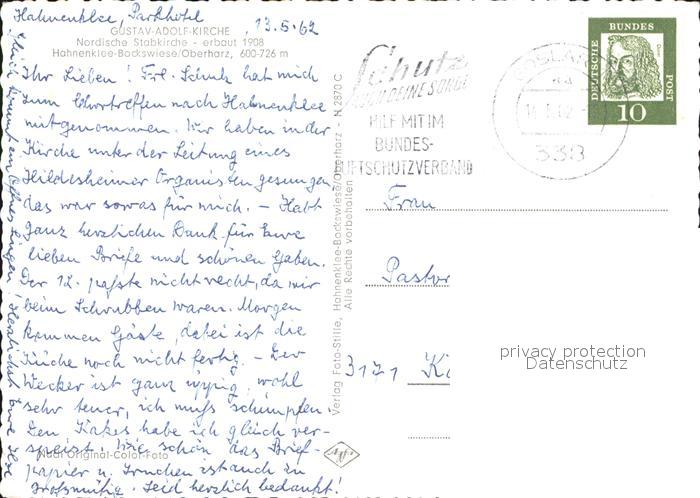 Hahnenklee, Parkhotel
13.5.62
GUSTAV-ADOLF-KIRCHE
Nordische Stabkirche - erbaut 1908
Hahnenklee-Bockswiese/Oberharz, 600-726 m
Ihr Lieben! Frl. Schulz hat mich
zum Chortreffen nach Hahnenklee
mitgenommen. Wir haben in der
Kirche unter der Leitung eines
Hildesheimer Organisten gesungen
das war sowas für mich. – Habt
ganz herzlichen Dank für Eure
lieben Briefe und schönen Gaben.
Der 12. paßte nicht recht, da wir
beim Schrubben waren. Morgen
kommen Gäste, dabei ist die
Küche noch nicht fertig. – Der
Wecker ist ganz üppig, wohl
sehr teuer, ich muß schimpfen.
Den Kakes habe ich gleich ver-
speist. Wie schön das Brief-
papier u. ist auch zu
großmütig. Seid herzlich bedankt!
Original-Color-Foto
Verlag Foto-Stille, Hahnenklee-Bockswiese/Oberharz - N 2570 C
Alle Rechte vorbehalten
Agfa
Schutz
DEINE SORGE
HILF MIT IM
BUNDES-
LUFTSCHUTZVERBAND
GOSLAR
338
DEUTSCHE
BUNDES
POST
Dürer
10
Frau
Pastor
3171
privacy protection
Datenschutz